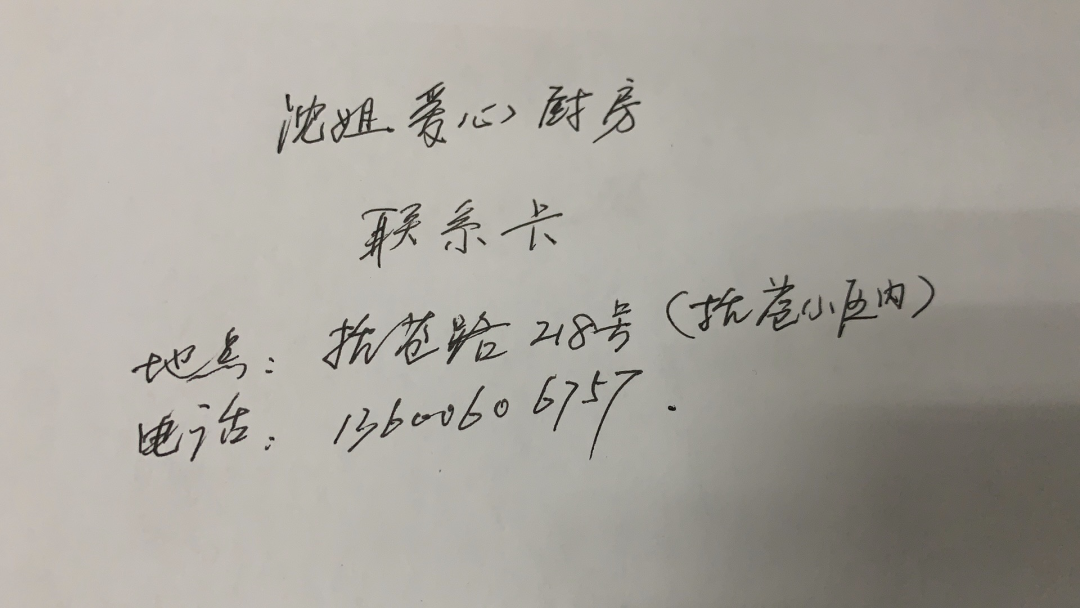 沈姐爱心厨房
联系卡
地点：括苍路218号（括苍小区内）
电话：13600606757.